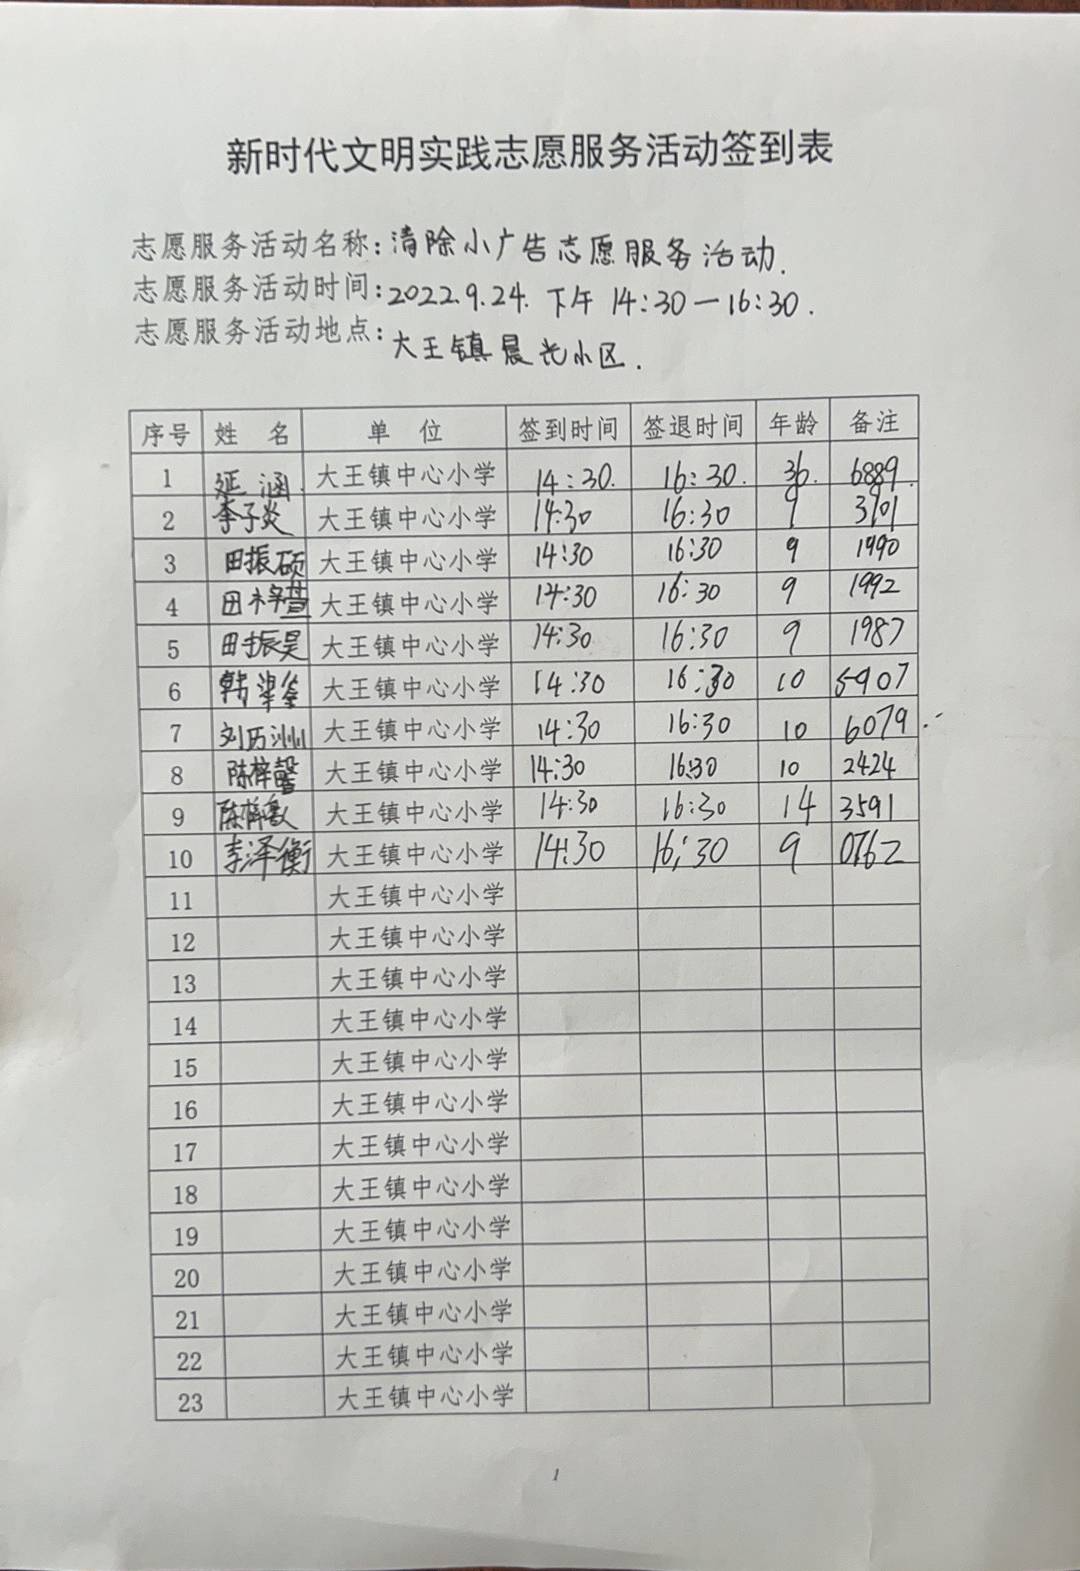 新时代文明实践志愿服务活动签到表
志愿服务活动名称:清除小广告志愿服务活动.
志愿服务活动时间:2022.9.24.下午14:30—16:30.
志愿服务活动地点:大王镇晨光小区.
序号 姓 名 单 位 签到时间 签退时间 年龄 备注
1 延涵. 大王镇中心小学 14:30. 16:30. 36. 6889.
2 李子炎 大王镇中心小学 14:30 16:30 9 3901
3 田振硕 大王镇中心小学 14:30 16:30 9 1990
4 田梓萱 大王镇中心小学 14:30 16:30 9 1992
5 田振昊 大王镇中心小学 14:30 16:30 9 1987
6 韩 大王镇中心小学 14:30 16:30 10 5907
7 刘历洲 大王镇中心小学 14:30 16:30 10 6079
8 陈梓馨 大王镇中心小学 14:30 16:30 10 2424
9 陈梓 大王镇中心小学 14:30 16:30 14 3591
10 李泽衡 大王镇中心小学 14:30 16:30 9 0762
11 大王镇中心小学
12 大王镇中心小学
13 大王镇中心小学
14 大王镇中心小学
15 大王镇中心小学
16 大王镇中心小学
17 大王镇中心小学
18 大王镇中心小学
19 大王镇中心小学
20 大王镇中心小学
21 大王镇中心小学
22 大王镇中心小学
23 大王镇中心小学
1